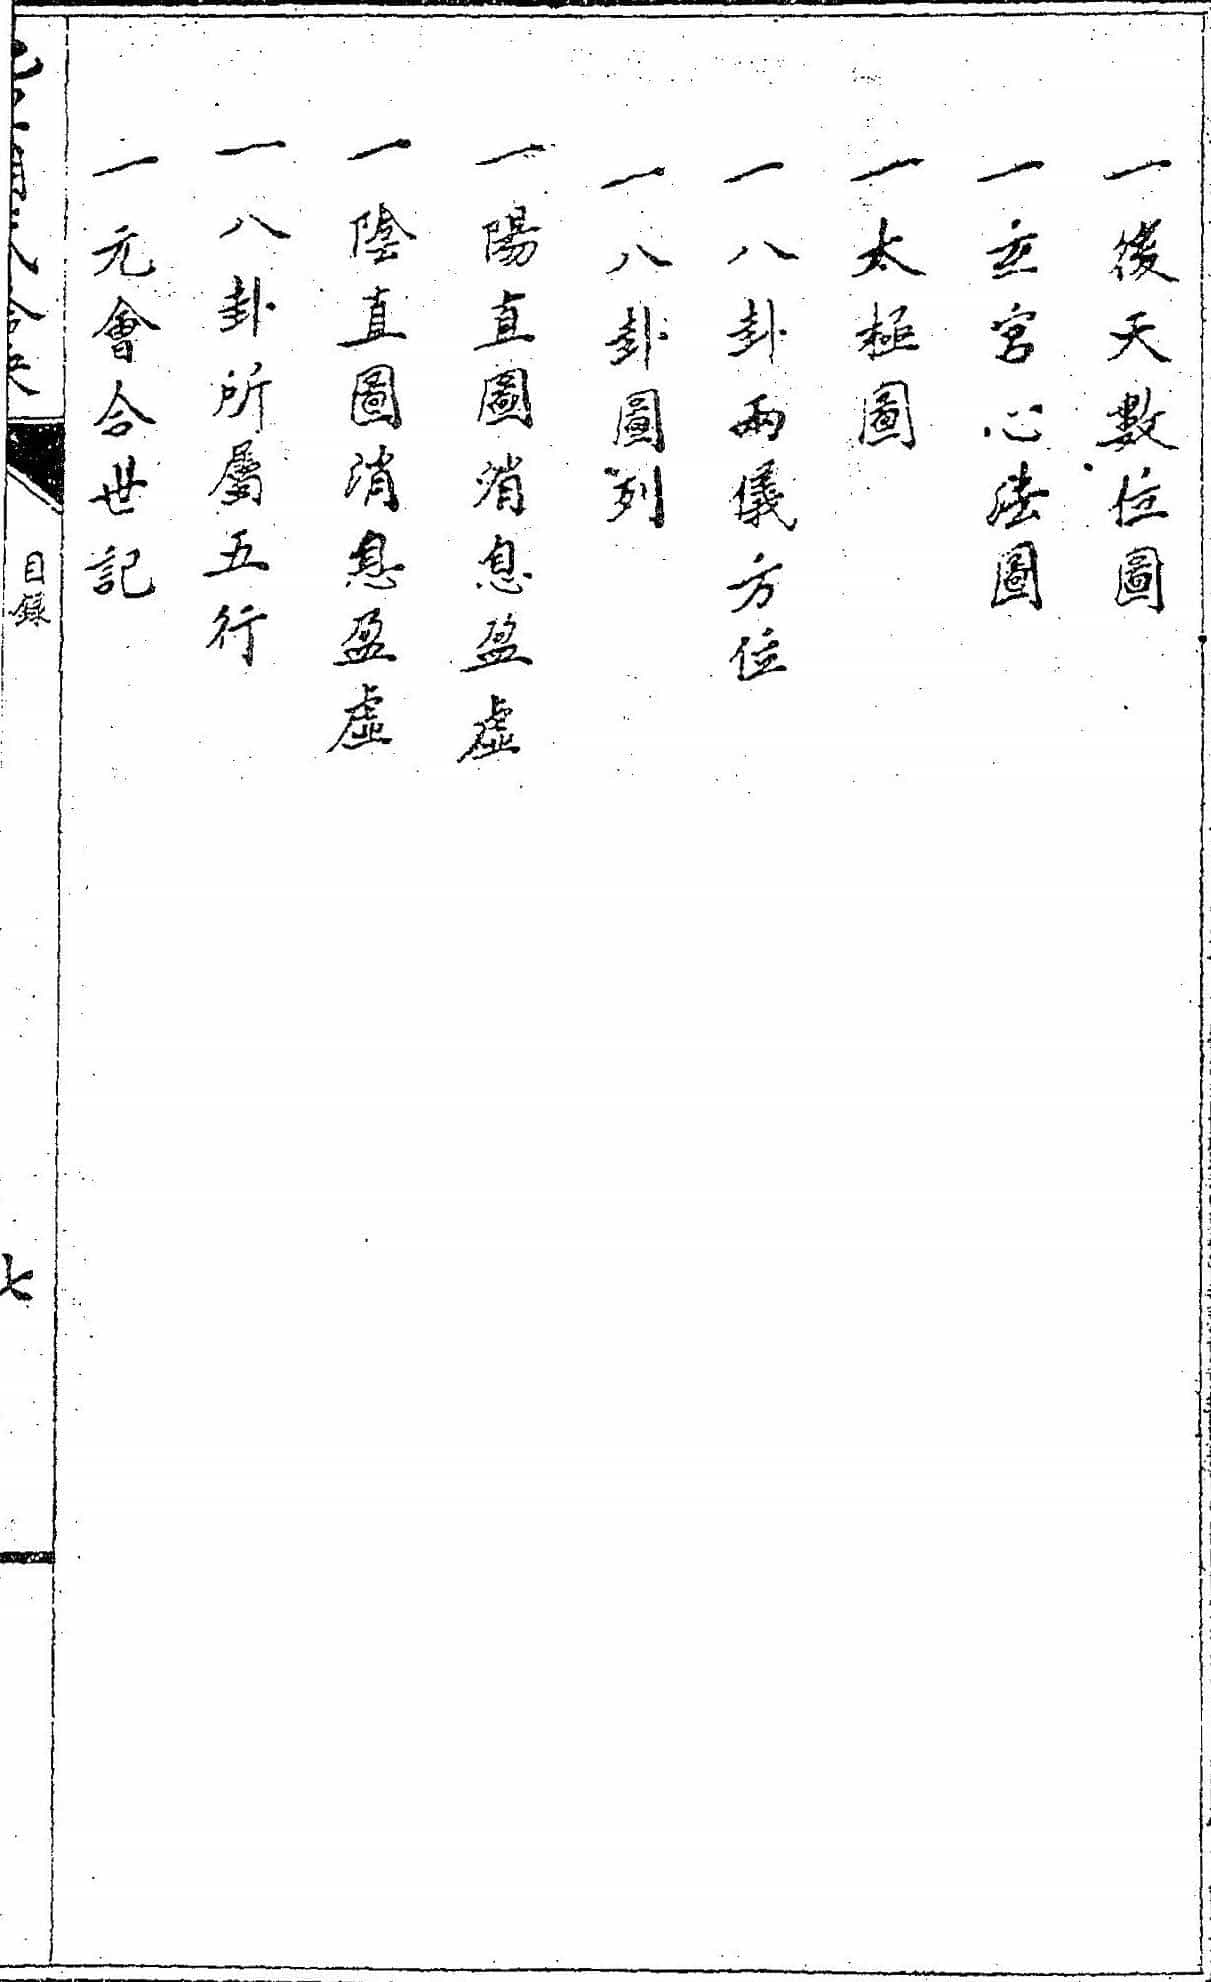 一後天數位圖
一立宮心法圖
一太極圖
一八卦兩儀方位
一八卦圖列
一陽直圖消息盈虛
一陰直圖消息盈虛
一八卦所屬五行
一元會合世記
目錄
七